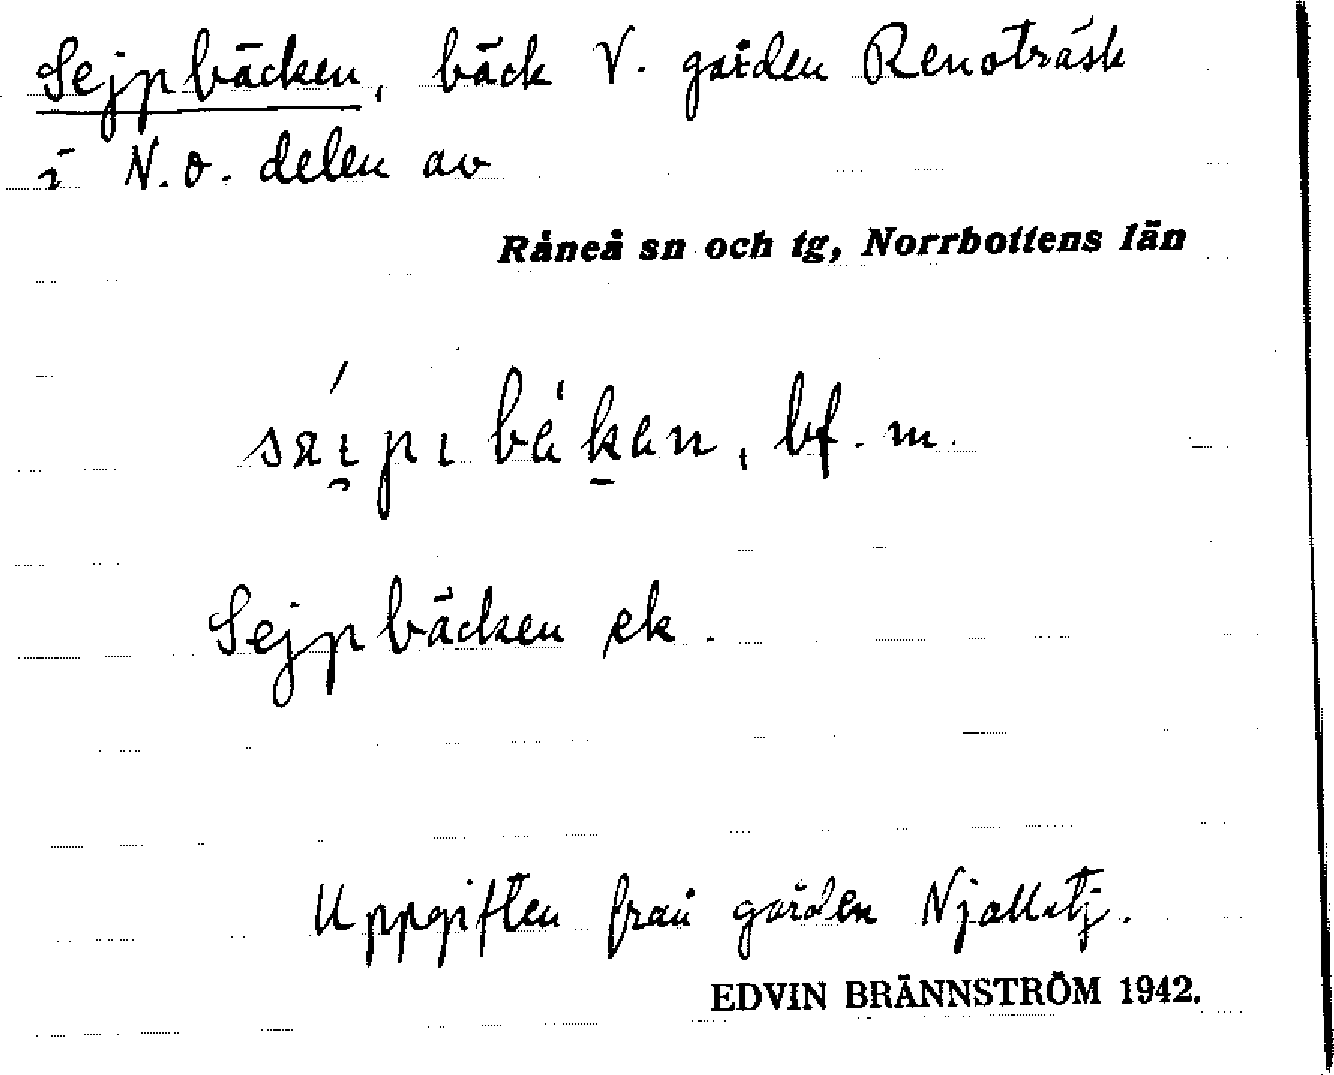 Sejpbäcken, bäck V. gården Renoträsk
i N.o. delen av
Råneå sn och tg, Norrbottens län
bf. m.
Sejpbäcken ek.
Uppgiften från gården Njallatj.
EDVIN BRÄNNSTRÖM 1942.